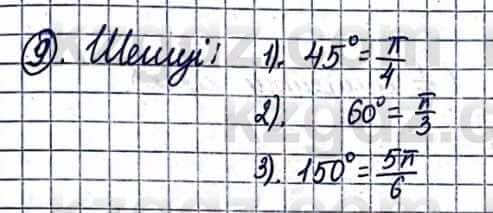 9. Шешуі: 1). 45° = π/4
2). 60° = π/3
3). 150° = 5π/6